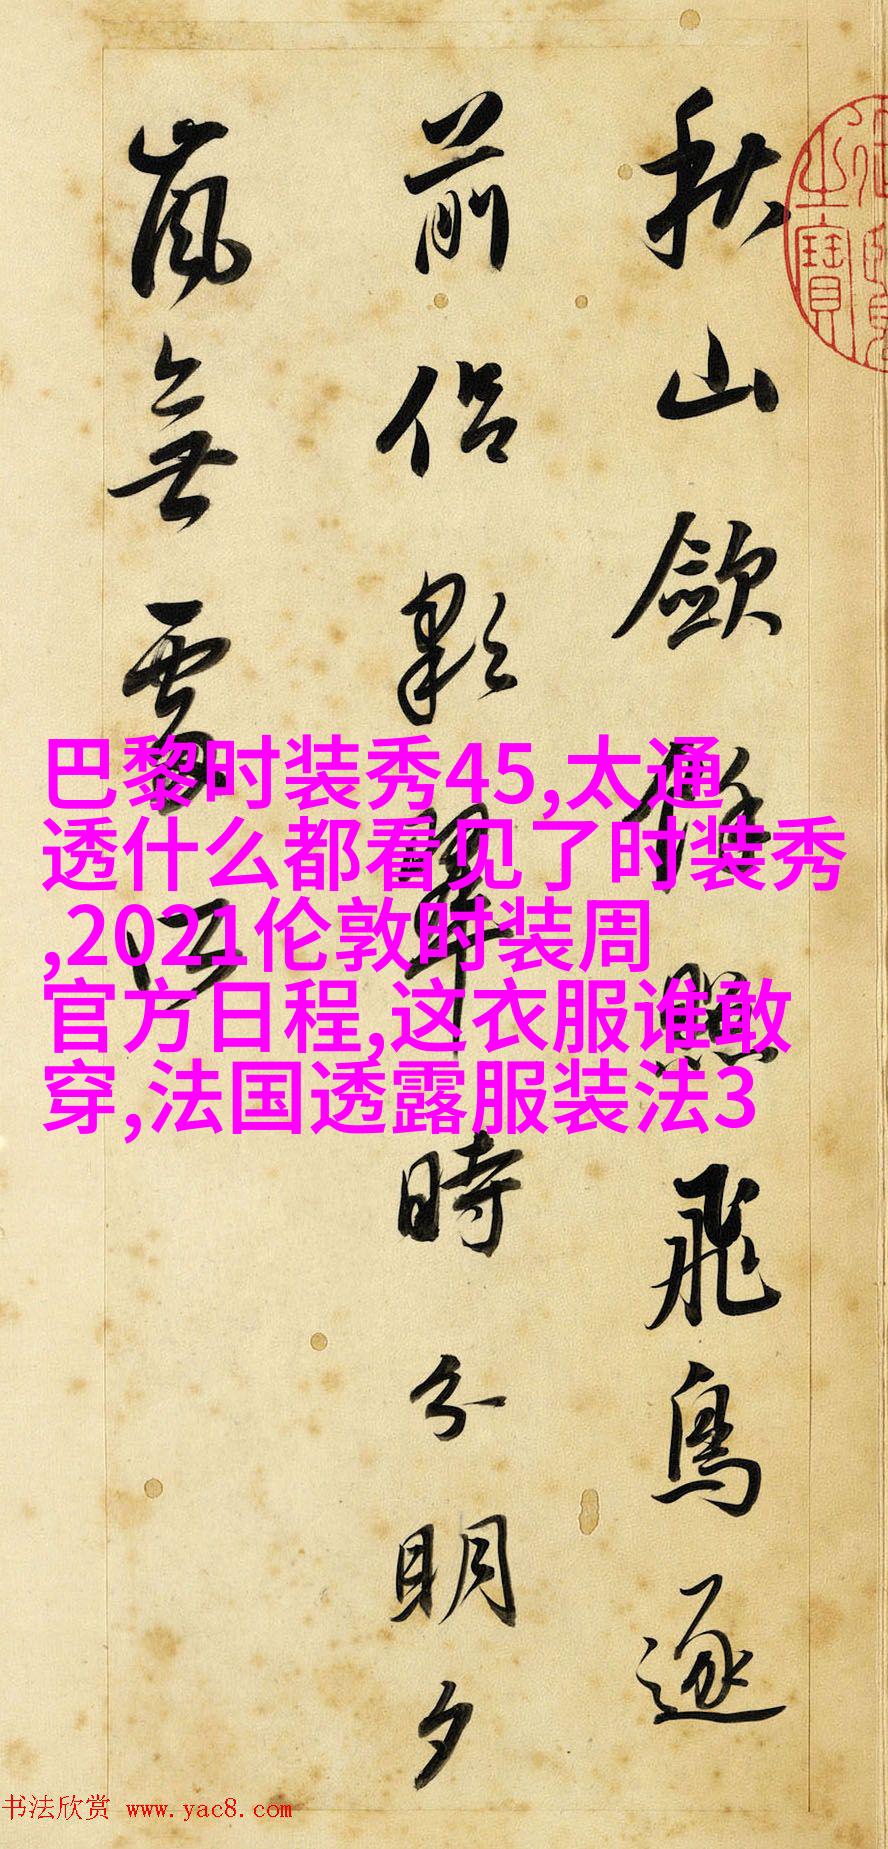 秋山歛餘照飛鳥逐
前侣彩翠時分明夕
嵐無處所
之寶
巴黎时装秀45,太通
透什么都看见了时装秀
,2021伦敦时装周
官方日程,这衣服谁敢
穿,法国透露服装法3
书法欣赏 www.yac8.com